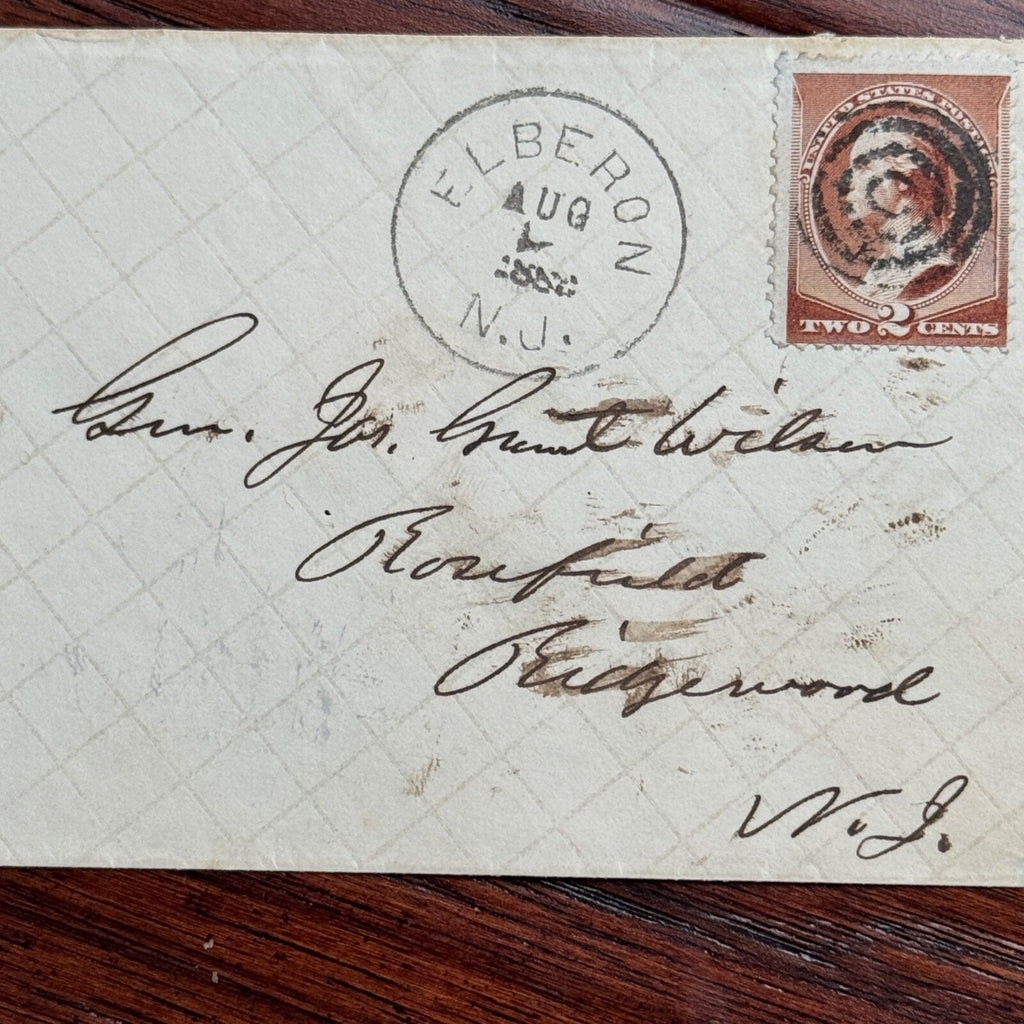 ELBERON
AUG
N.J.
UNITED STATES POSTAGE
TWO 2 CENTS
Gen. Jas. Grant Wilson
Rosefield
Ridgewood
N.J.